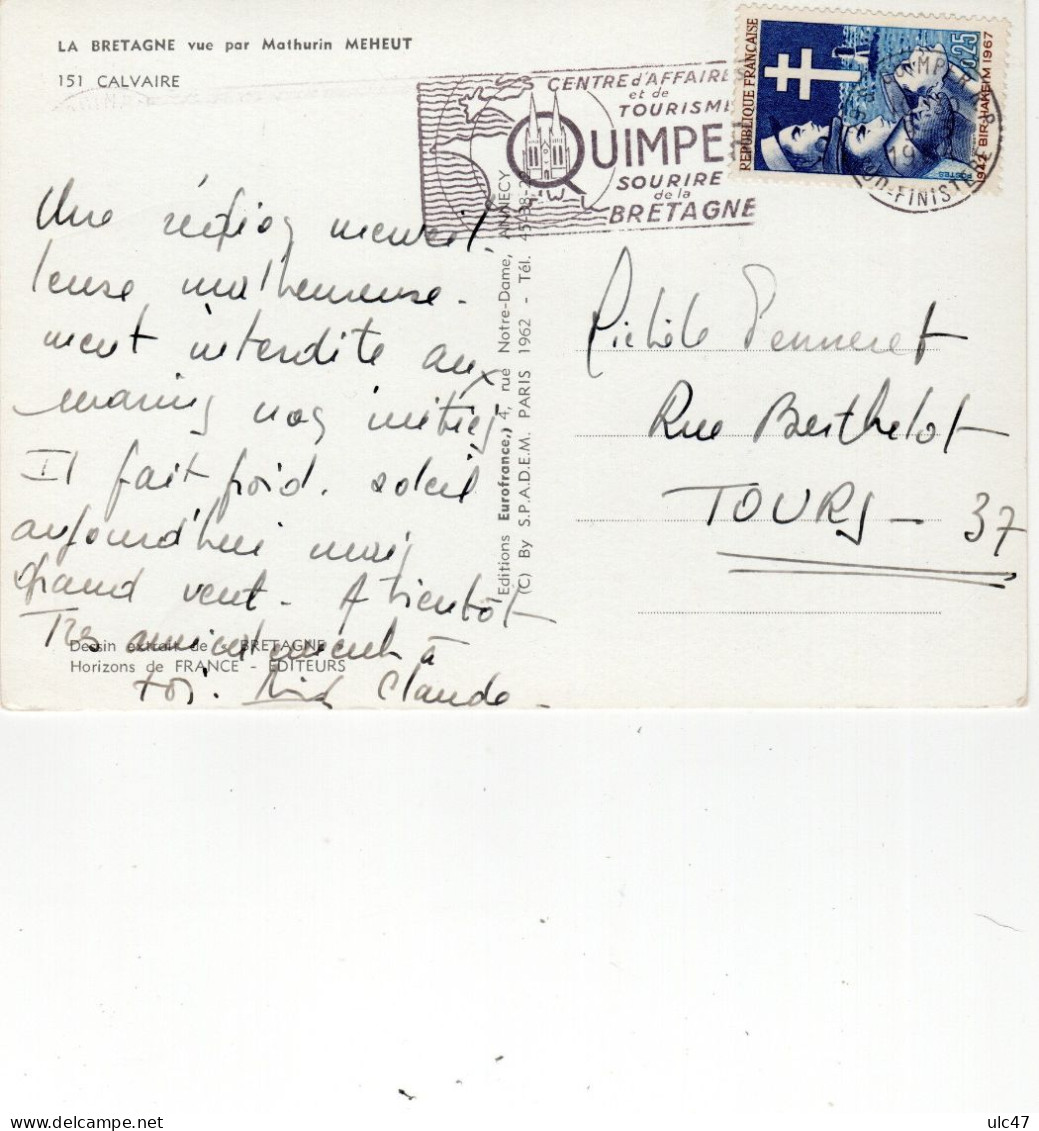 LA BRETAGNE vue par Mathurin MEHEUT
151 CALVAIRE
CENTRE d'AFFAIRES
et de
TOURISME
QUIMPER
SOURIRE
de la
BRETAGNE
REPUBLIQUE FRANÇAISE
0,25
1942 BIR-HAKEIM 1967
POSTES
QUIMPER R.P.
SUD-FINISTERE
Une région merveil
leuse malheureuse-
ment interdite aux
marins non initiés
Il fait froid. soleil
aujourd'hui mais
grand vent - A bientôt
Très amicalement à
toi. Claude -
Editions Eurofrance, 4, rue Notre-Dame, ANNECY
(C) By S.P.A.D.E.M. PARIS 1962 - Tél. 45-38-28
Michèle Penneret
Rue Berthelot
TOURS - 37
Dessin extrait de « BRETAGNE
Horizons de FRANCE - EDITEURS
ulc47